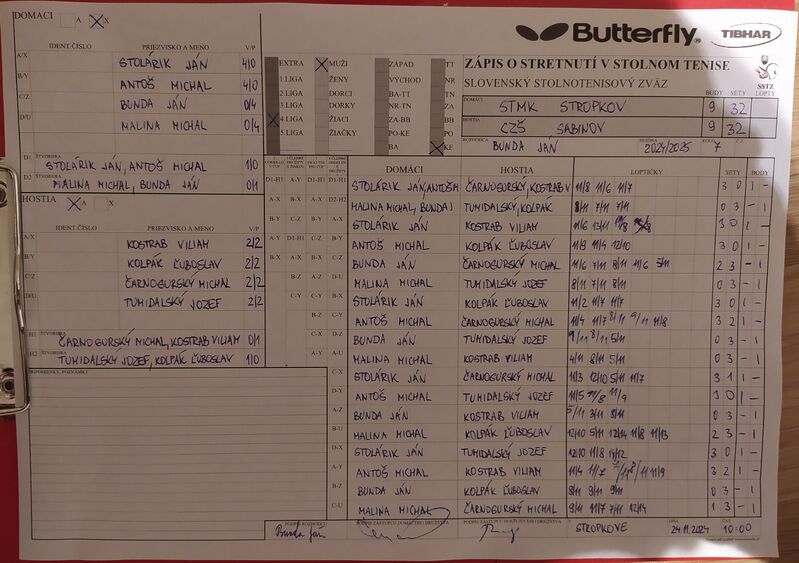 DOMÁCI A X
Butterfly
TIBHAR
IDENT. ČÍSLO PRIEZVISKO A MENO V/P
A/X STOLÁRIK JÁN 4/0
B/Y ANTOŠ MICHAL 4/0
C/Z BUNDA JÁN 0/4
D/U MALINA MICHAL 0/4
D1 ŠTVORHRA STOLÁRIK JÁN, ANTOŠ MICHAL 1/0
D2 ŠTVORHRA MALINA MICHAL, BUNDA JÁN 0/1
HOSTIA A X
IDENT. ČÍSLO PRIEZVISKO A MENO V/P
A/X KOSTRAB VILIAM 2/2
B/Y KOLPÁK ĽUBOSLAV 2/2
C/Z ČARNOGURSKÝ MICHAL 2/2
D/U TUMIDALSKÝ JOZEF 2/2
H1 ŠTVORHRA ČARNOGURSKÝ MICHAL, KOSTRAB VILIAM 0/1
H2 ŠTVORHRA TUMIDALSKÝ JOZEF, KOLPÁK ĽUBOSLAV 1/0
PRIPOMIENKY, POZNÁMKY
EXTRA MUŽI ZÁPAD TT
1.LIGA ŽENY VÝCHOD NR
2.LIGA DORCI BA-TT TN
3.LIGA DORKY NR-TN ZA
4.LIGA ŽIACI ZA-BB BB
5.LIGA ŽIAČKY PO-KE PO
BA KE
ZÁPIS O STRETNUTÍ V STOLNOM TENISE
SLOVENSKÝ STOLNOTENISOVÝ ZVÄZ
SSTZ
BODY SETY LOPTY
DOMÁCI STMK STROPKOV 9 32
HOSTIA CZŠ SABINOV 9 32
ROZHODCA BUNDA JÁN SEZÓNA 2024/2025 KOLO 7
DOMÁCI HOSTIA LOPTIČKY SETY BODY
STOLÁRIK JÁN, ANTOŠ M ČARNOGURSKÝ, KOSTRAB V 11/8 11/6 11/7 3 0 1 -
MALINA MICHAL, BUNDA J TUMIDALSKÝ, KOLPÁK 8/11 7/11 7/11 0 3 - 1
STOLÁRIK JÁN KOSTRAB VILIAM 11/6 13/11 3 0 1 -
ANTOŠ MICHAL KOLPÁK ĽUBOSLAV 11/9 11/4 12/10 3 0 1 -
BUNDA JÁN ČARNOGURSKÝ MICHAL 11/6 7/11 8/11 11/6 5/11 2 3 - 1
MALINA MICHAL TUMIDALSKÝ JOZEF 8/11 7/11 8/11 0 3 - 1
STOLÁRIK JÁN KOLPÁK ĽUBOSLAV 11/2 11/7 11/7 3 0 1 -
ANTOŠ MICHAL ČARNOGURSKÝ MICHAL 11/4 11/7 8/11 9/11 11/8 3 2 1 -
BUNDA JÁN TUMIDALSKÝ JOZEF 9/11 8/11 5/11 0 3 - 1
MALINA MICHAL KOSTRAB VILIAM 4/11 8/11 5/11 0 3 - 1
STOLÁRIK JÁN ČARNOGURSKÝ MICHAL 11/3 12/10 5/11 11/7 3 1 1 -
ANTOŠ MICHAL TUMIDALSKÝ JOZEF 11/5 11/8 11/9 3 0 1 -
BUNDA JÁN KOSTRAB VILIAM 5/11 3/11 8/11 0 3 - 1
MALINA MICHAL KOLPÁK ĽUBOSLAV 12/10 5/11 12/14 11/8 11/13 2 3 - 1
STOLÁRIK JÁN TUMIDALSKÝ JOZEF 12/10 11/8 3 0 1 -
ANTOŠ MICHAL KOSTRAB VILIAM 11/4 11/7 11/9 3 2 1 -
BUNDA JÁN KOLPÁK ĽUBOSLAV 8/11 9/11 9/11 0 3 - 1
MALINA MICHAL ČARNOGURSKÝ MICHAL 9/11 11/7 7/11 12/14 1 3 - 1
PODPIS ROZHODCU PODPIS ZÁSTUPCU DOMÁCEHO DRUŽSTVA PODPIS ZÁSTUPCU HOSŤUJÚCEHO DRUŽSTVA DŇA ČAS
Bunda Ján STROPKOVE 24.11.2024 10:00